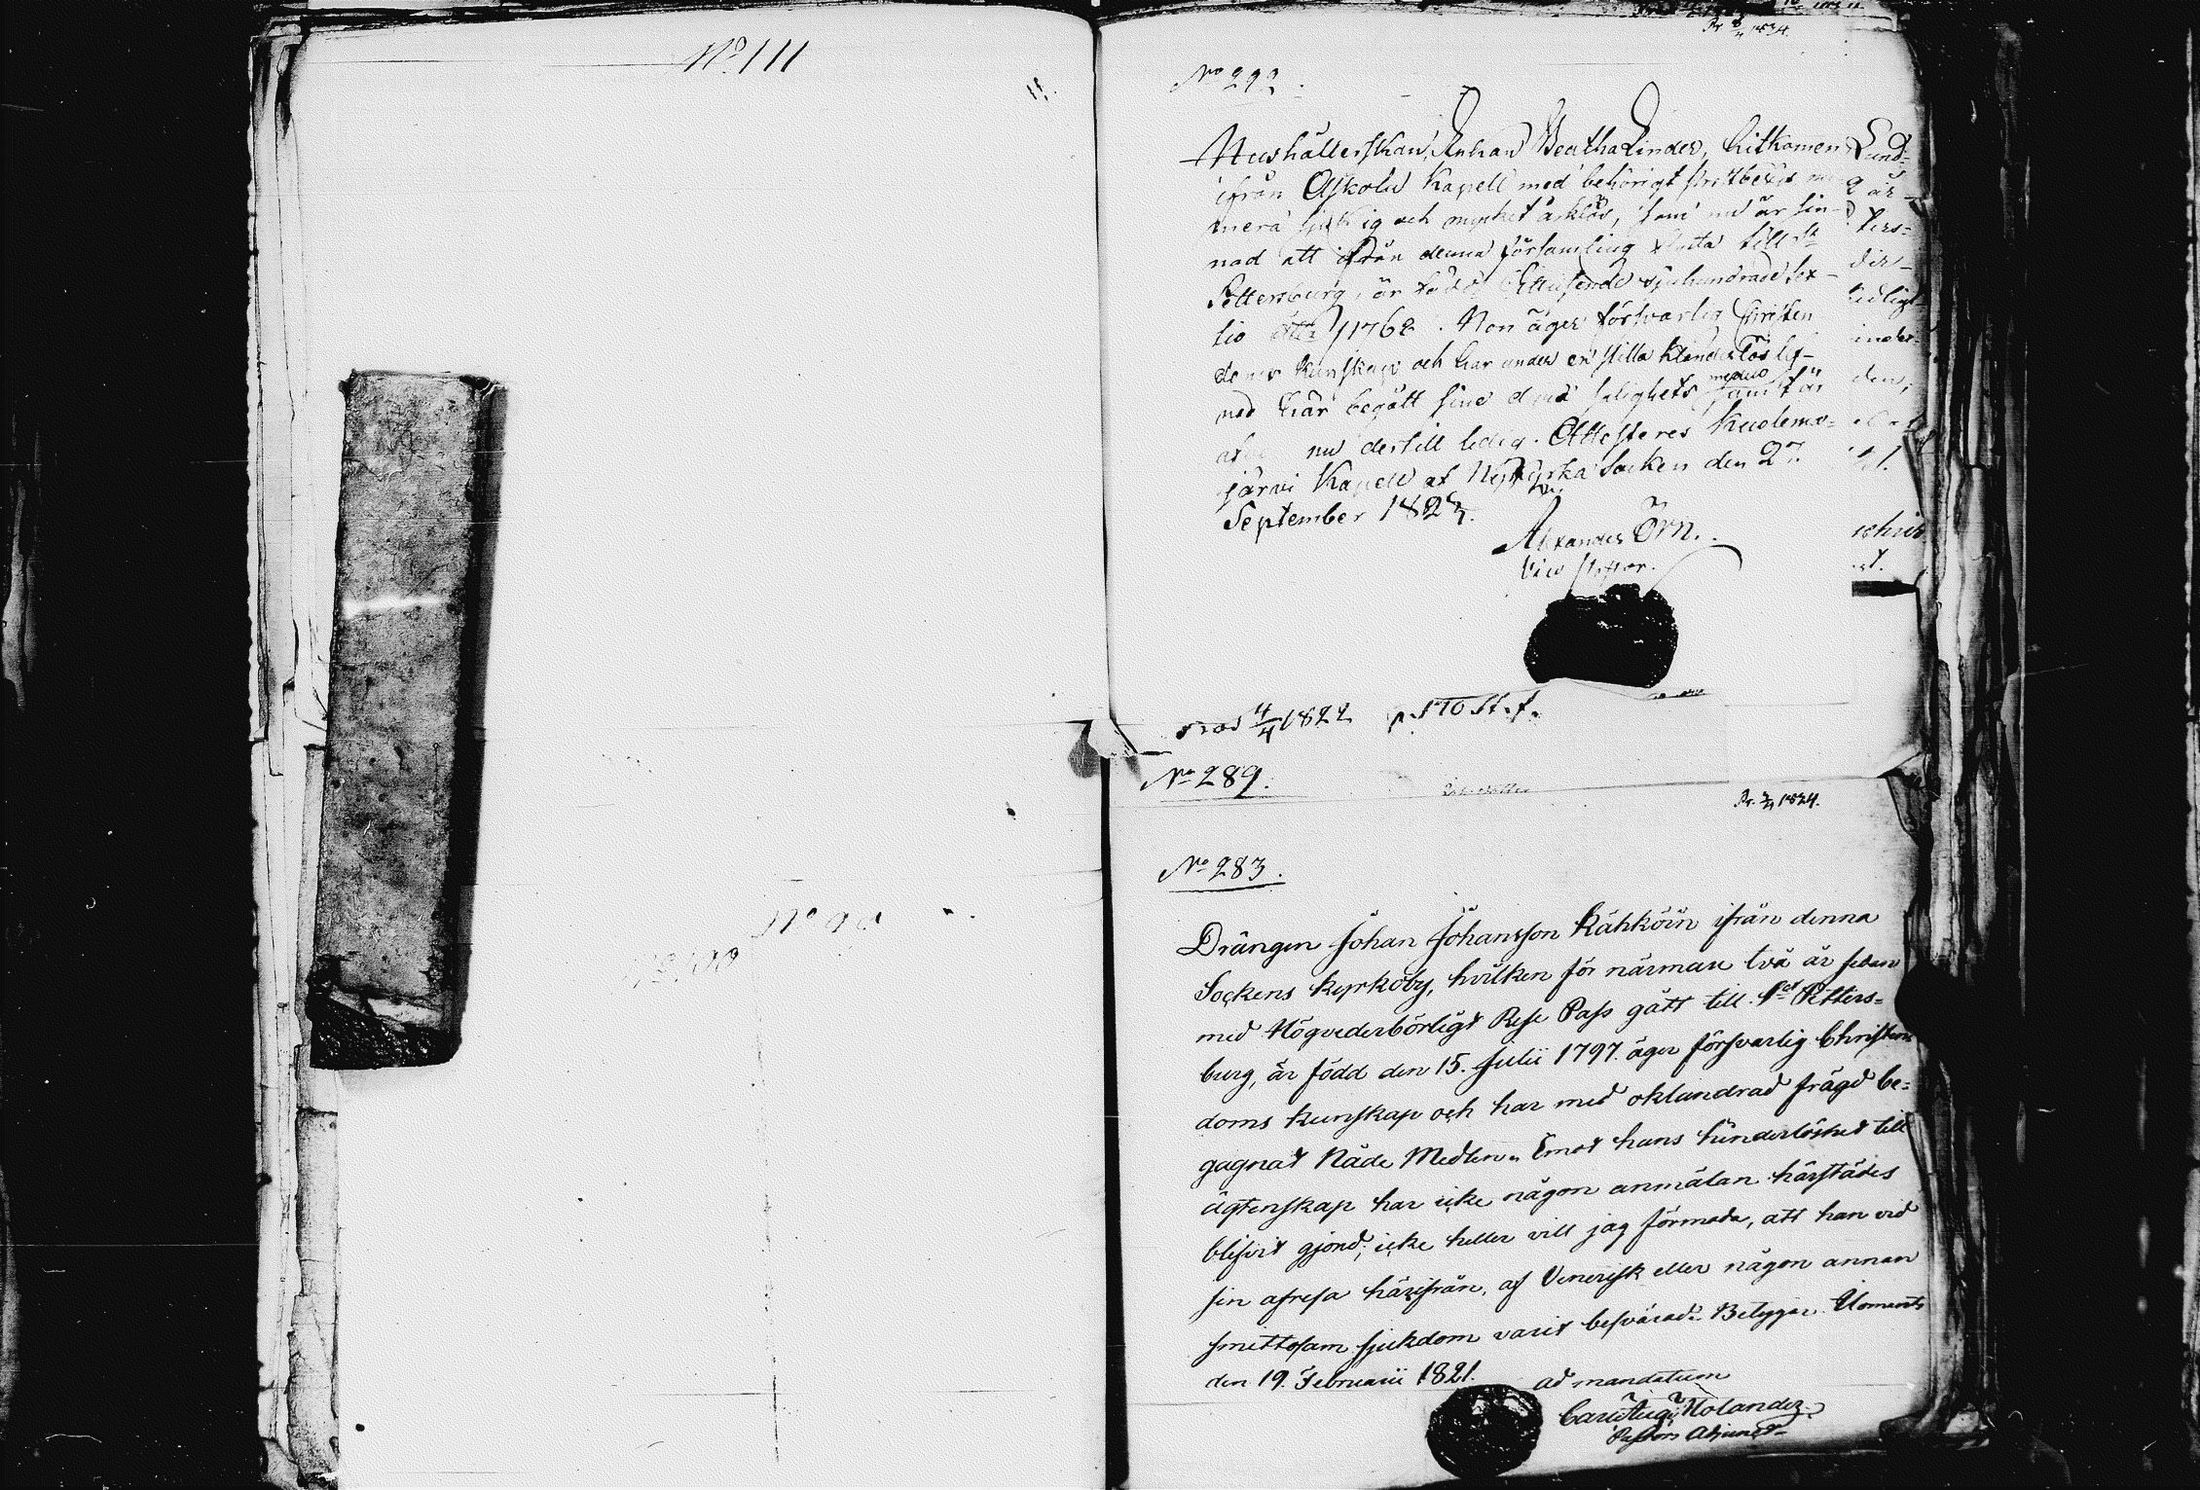 No 111
11.
Pr 1824.
No 292.
Hushållerskan, Enkan Beatha Linder, hitkommen
ifrån Askola Kapell med behörigt prestbetyg
mera sjuklig och mycket åklös, som nu är sin-
nad att ifrån denna församling flytta till St
Pettersburg, är född Ettusende sjuhundrade sex-
tio 1762. Hon äger försvarlig Christen
doms kunskap och har under en stilla klanderlös lef-
nad här begått sine salighets medel samt är
nu dertill ledig. Attesteres Kuolema-
järvi Kapell af Nykyrka Socken den 27.
September 1822.
Alexander Örn.
Vice Pastor.
Lund-
2 år
ters-
der-
tidligt
inder-
den,
schrib
4/4 1822 p. 170 St. f.
No 289.
Pr. 1824.
No 283.
Drängen Johan Johansson Kähköin ifrån denna
Sockens kyrkoby, hvilken för närmare två år sedan
med Högvederbörligt Rese Pass gått till St Petters-
burg, är född den 15. Julii 1797. äger försvarlig Christen
doms kunskap och har med oklandrad frägd be-
gagnat Nåde Medlen. Emot hans hinderlöshet till
ägtenskap har icke någon anmälan härstädes
blifvit gjord; icke heller vill jag förmoda, att han vid
sin afresa härifrån, af Venerisk eller någon annan
smittosam sjukdom varit besvärad. Betygar
den 19. Februarii 1821.
ad mandatum
Carl Aug. Molander
Pastors Adjunct
No 90
No 100